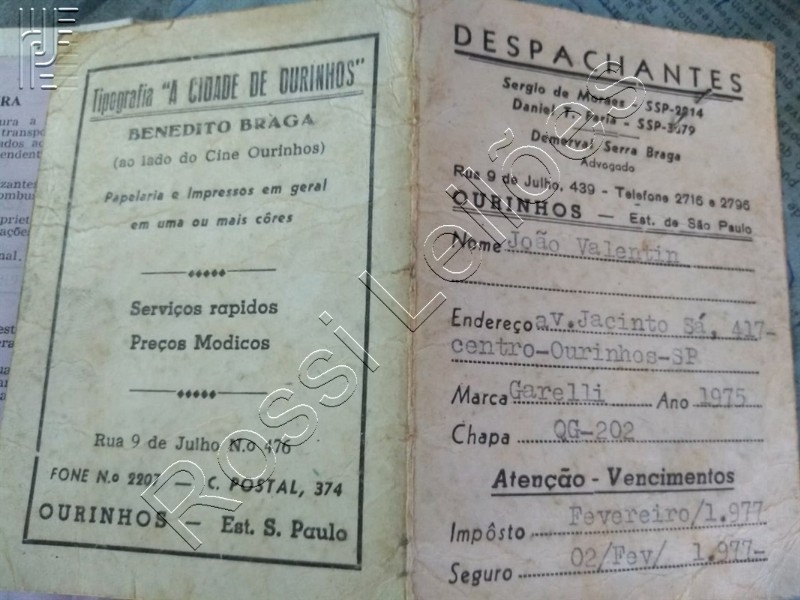 Tipografia "A CIDADE DE OURINHOS"
BENEDITO BRAGA
(ao lado do Cine Ourinhos)
Papelaria e Impressos em geral
em uma ou mais côres
Serviços rapidos
Preços Modicos
Rua 9 de Julho N.o 476
FONE N.o 2207 — C. POSTAL, 374
OURINHOS — Est. S. Paulo
DESPACHANTES
Sergio de Moraes - SSP-2814
Daniel F. Faria - SSP-3679
Demerval Serra Braga
Advogado
Rua 9 de Julho, 439 - Telefone 2716 e 2796
OURINHOS — Est. de São Paulo
Nome João Valentin
Endereço av.Jacinto Sá, 417-
centro-Ourinhos-SP
Marca Garelli Ano 1975
Chapa QG-202
Atenção - Vencimentos
Impôsto Fevereiro/1.977
Seguro 02/Fev/ 1.977-
Rossi Leilões